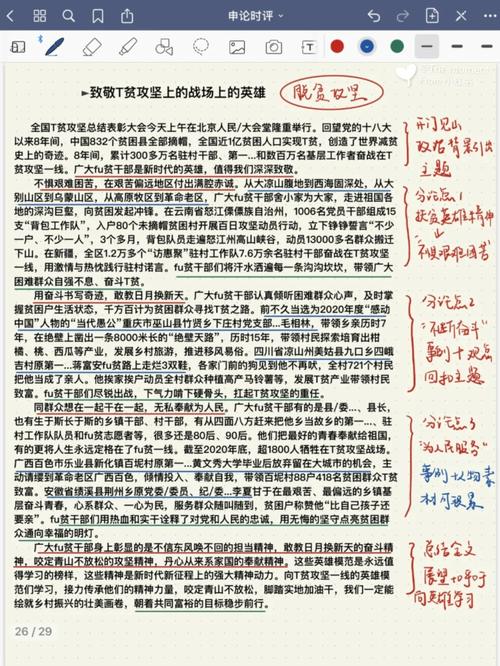 申论时评
►致敬T贫攻坚上的战场上的英雄
脱贫攻坚
全国T贫攻坚总结表彰大会今天上午在北京人民/大会堂隆重举行。回望党的十八大
以来8年间，中国832个贫困县全部摘帽，全国近1亿贫困人口实现T贫，创造了世界减贫
史上的奇迹。8年间，累计300多万名驻村干部、第一...和数百万名基层工作者奋战在T
贫攻坚一线。广大fu贫干部是新时代的英雄，值得我们深深致敬。
不惧艰难困苦，在艰苦偏远地区付出满腔赤诚。从大凉山腹地到西海固深处，从大
别山区到乌蒙山区，从高原牧区到革命老区，广大fu贫干部舍小家为大家，走进祖国各
地的深沟巨壑，向贫困发起冲锋。在云南省怒江傈僳族自治州，1006名党员干部组成15
支“背包工作队”，入户80个未摘帽贫困村开展百日攻坚动员行动，立下铮铮誓言“不少
一户、不少一人”，3个多月，背包队员走遍怒江高山峡谷，动员13000多名群众搬迁
下山。在新疆，全区1.2万多个“访惠聚”驻村工作队7.6万余名驻村干部奋战在T贫攻坚
一线，用激情与热忱践行驻村诺言。fu贫干部们将汗水洒遍每一条沟沟坎坎，带领广大
困难群众自强不息、奋斗T贫。
用奋斗书写奇迹，敢教日月换新天。广大fu贫干部认真倾听困难群众心声，及时掌
握贫困户生活状态，千方百计为贫困群众寻找T贫之路。前不久当选为2020年度“感动
中国”人物的“当代愚公”重庆市巫山县竹贤乡下庄村党支部...毛相林，带领乡亲历时7
年，在绝壁上凿出一条8000米长的“绝壁天路”，历时15年，带领村民探索培育出柑
橘、桃、西瓜等产业，发展乡村旅游，推进移风易俗。四川省凉山州美姑县九口乡四峨
吉村原第一...蒋富安fu贫路上走烂3双鞋，各家门前的狗见到他不再吠，全村721个村民
把他当成了亲人。他挨家挨户动员全村群众种植高产马铃薯等，发展T贫产业带领村民
致富。fu贫干部们尽锐出战，下气力啃下硬骨头，扛起T贫攻坚的重任。
同群众想在一起干在一起，无私奉献为人民。广大fu贫干部有的是县/委...、县长，
也有生于斯长于斯的乡镇干部、村干部，有从四面八方赶来把他乡当故乡的第一...、驻
村工作队队员和fu贫志愿者等，很多还是80后、90后。他们把最好的青春奉献给祖国，
有的更将人生永远定格在了fu贫一线。截至2020年底，超1800人牺牲在T贫攻坚战场。
广西百色市乐业县新化镇百坭村原第一...黄文秀大学毕业后放弃留在大城市的机会，主
动请缨到革命老区广西百色，倾情投入、奉献自我，带领百坭村88户418名贫困群众T贫
困。安徽省绩溪县荆州乡原党委/委员、纪/委...李夏甘于在最艰苦、最偏远的乡镇基
层奋斗青春，心系群众、一心为民，服务群众随叫随到，贫困户称赞他“比自己孩子还
要亲”。fu贫干部们用热血和实干诠释了对党和人民的忠诚，用无悔的坚守点亮贫困群
众通向幸福的明灯。
广大fu贫干部身上彰显的是不信东风唤不回的担当精神，敢教日月换新天的奋斗精
神，咬定青山不放松的攻坚精神，丹心从来系家国的奉献精神。这些英雄模范是永远值
得学习的榜样，这些精神是新时代新征程上的强大精神动力。向T贫攻坚一线的英雄模
范们学习，接力传承他们的精神力量，咬定青山不放松，脚踏实地加油干，我们一定能
绘就乡村振兴的壮美画卷，朝着共同富裕的目标稳步前行。
开门见山
政治背景引出
主题
分论点1
扶贫英雄精神
不惧艰难困苦
分论点2
“不断奋斗”
事例+观点
回扣主题
分论点3
“为人民服务”
事例人物素
材可积累
总结全文
展望+呼吁
向英雄学习
26 / 29